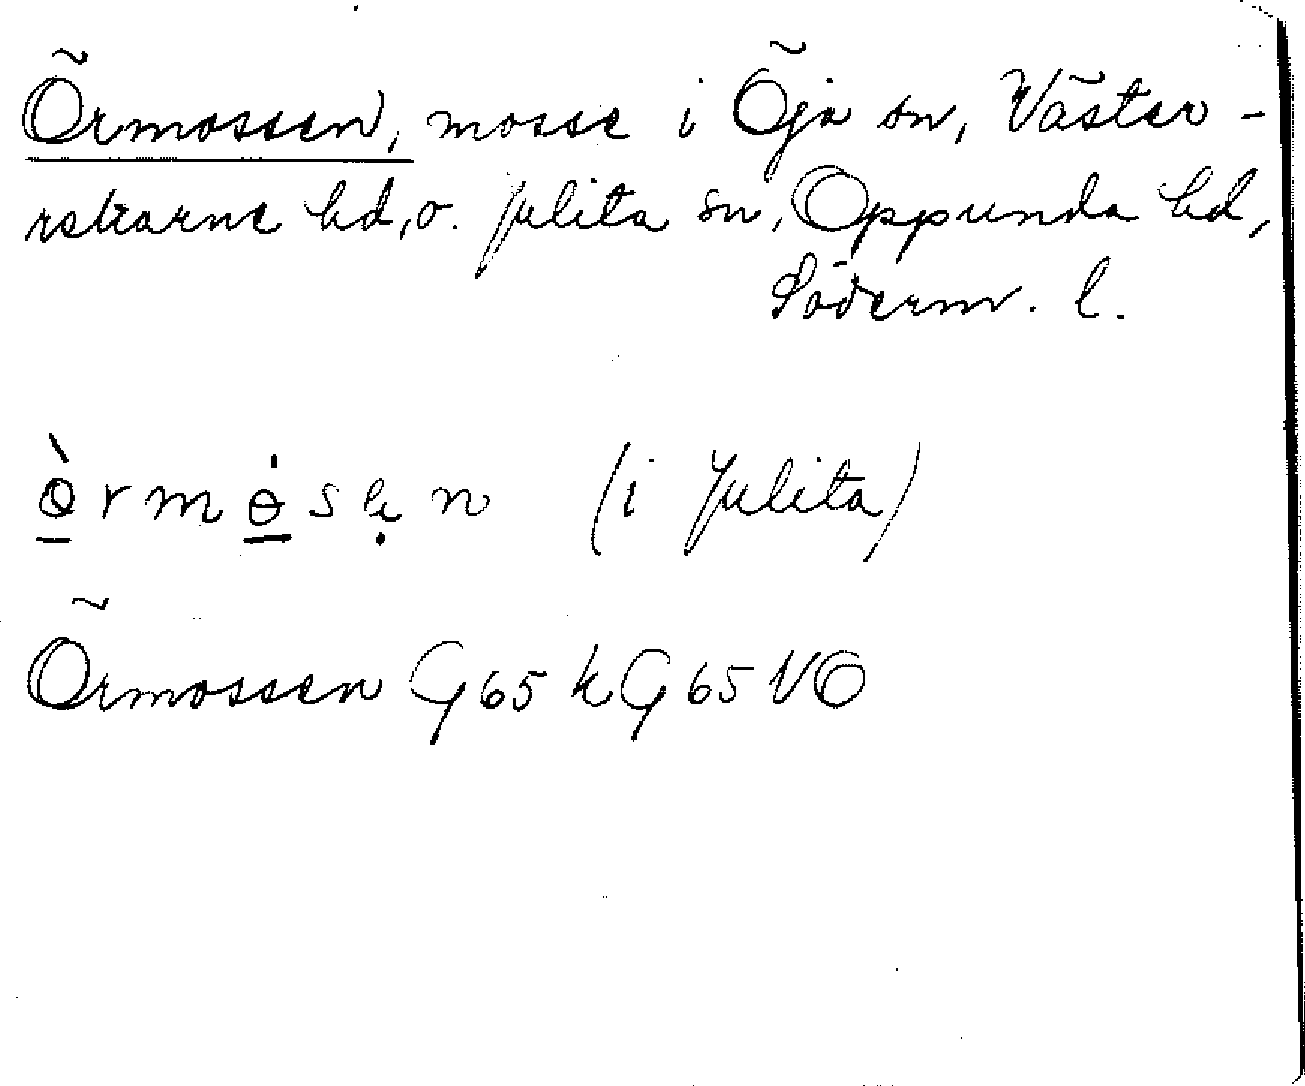 Örmossen, mosse i Öja sn, Väster-
rekarne hd, o. Julita sn, Oppunda hd,
Söderm. l.
ɵ̠̀rmɵ̠̇sẹn (i Julita)
Örmossen G65 kG65NO